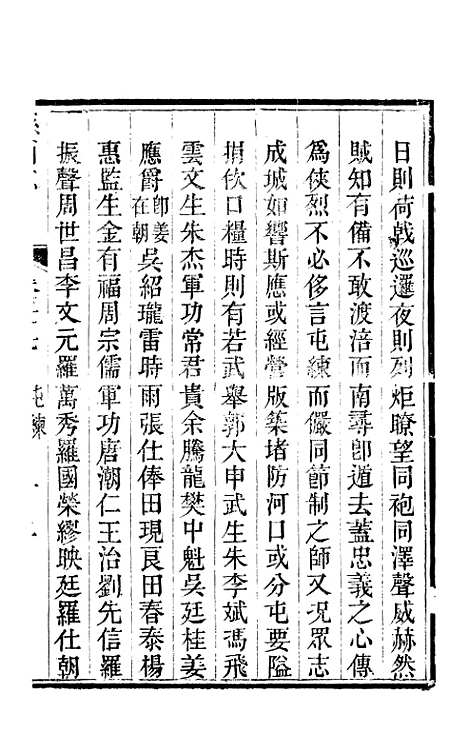 日則荷戟巡邏夜則列炬瞭望同袍同澤聲威赫然
賊知有備不敢渡涪而南尋卽遁去蓋忠義之心傳
為俠烈不必侈言屯練而儼同節制之師又況眾志
成城如響斯應或經營版築堵防河口或分屯要隘
捐飲口糧時則有若武舉郭大申武生朱李斌馮飛
雲文生朱杰軍功常君貴余騰龍樊中魁吳廷桂姜
應爵卽姜在朝吳紹瓏雷時雨張仕俸田現良田春泰楊
惠監生金有福周宗儒軍功唐潮仁王治劉先信羅
振聲周世昌李文元羅萬秀羅國榮繆映廷羅仕朝